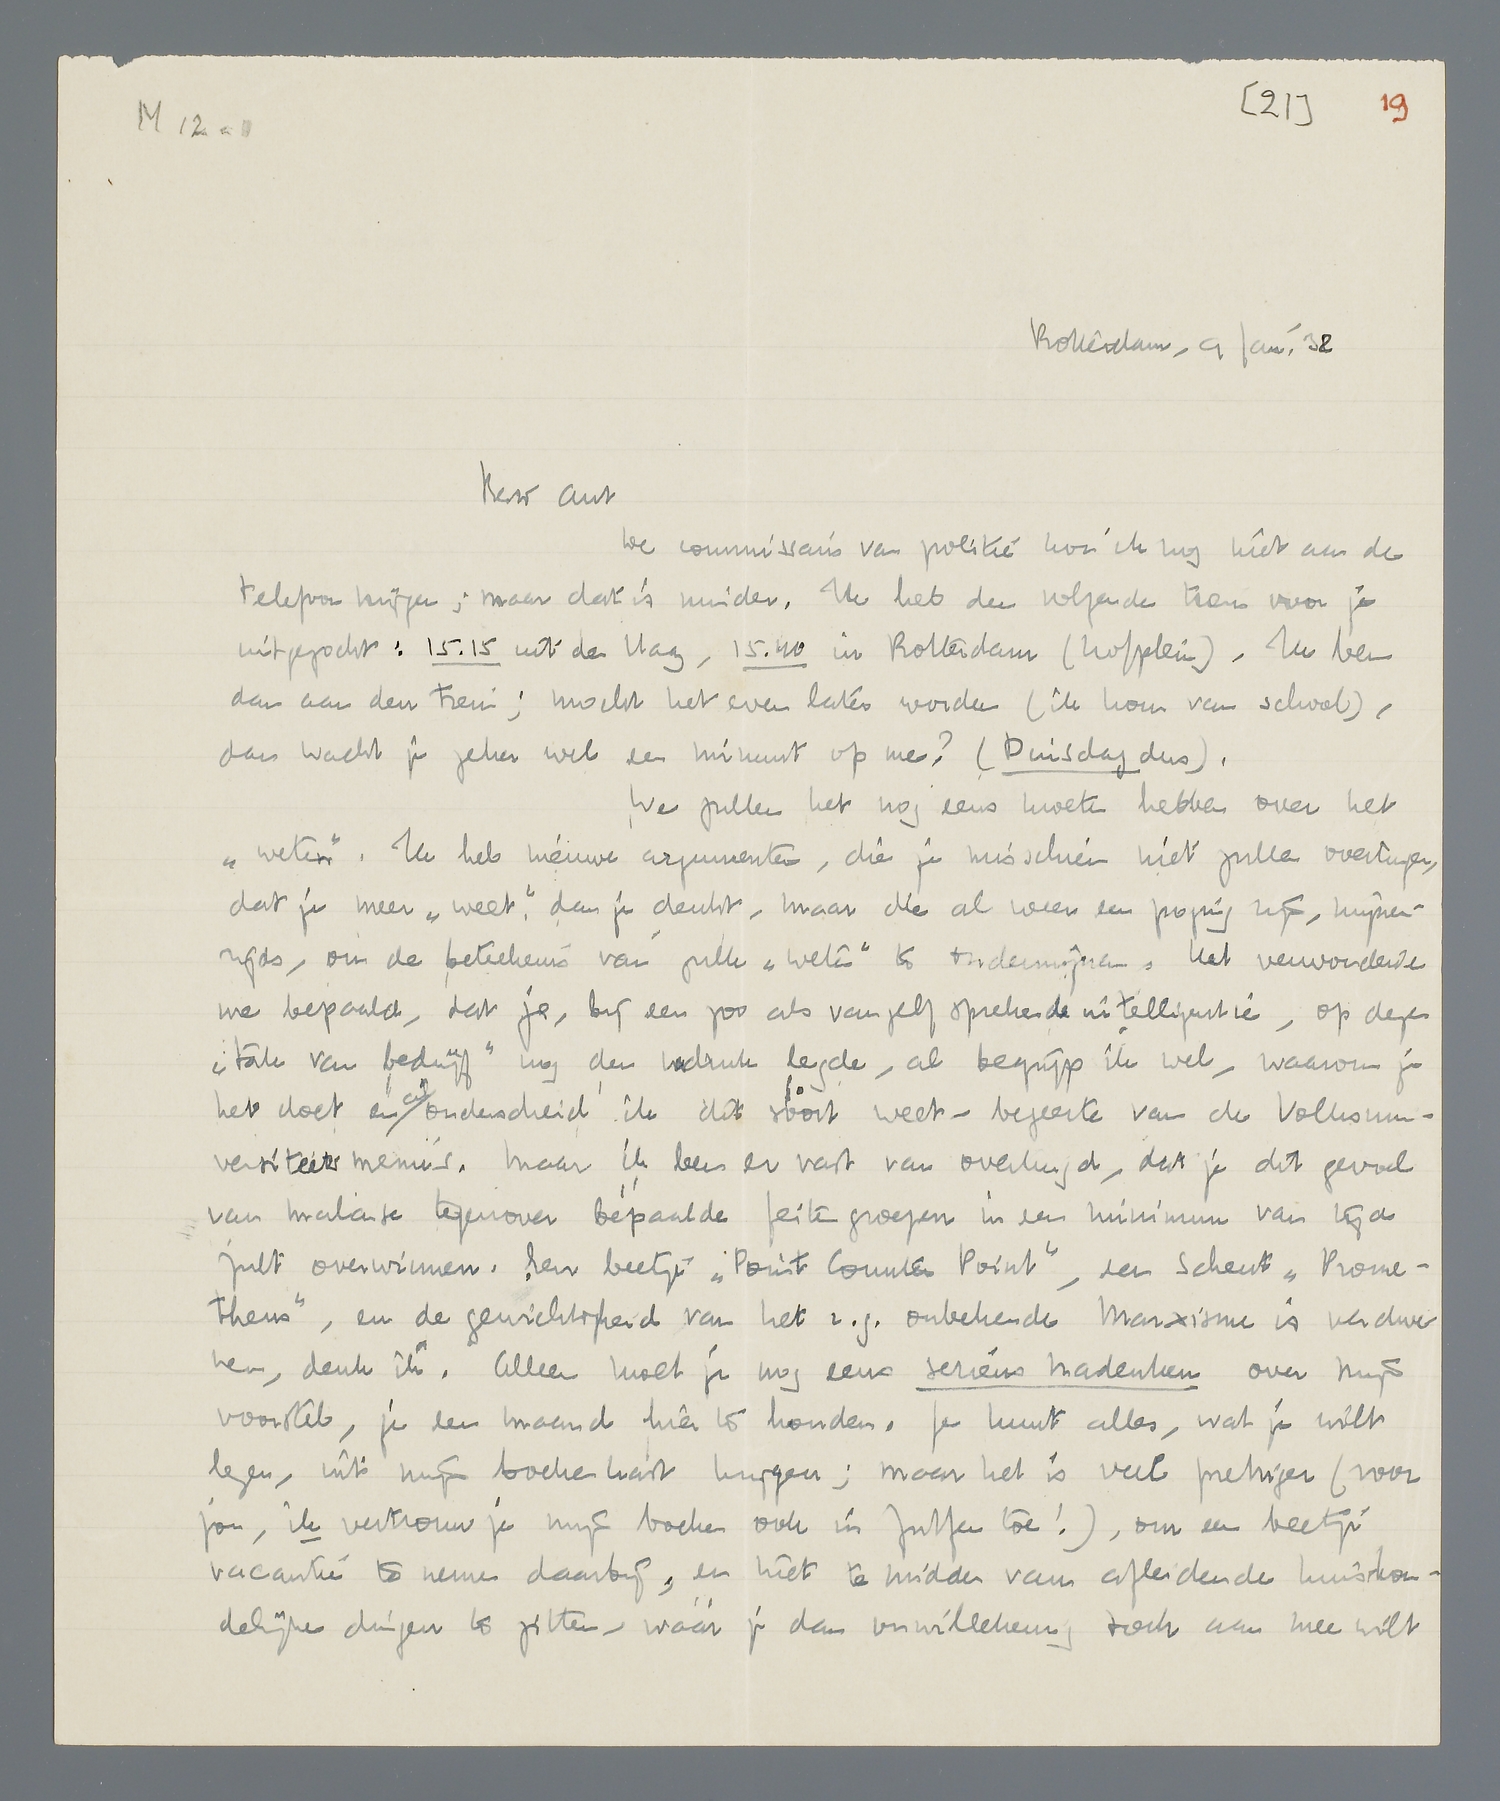 M 12 a
[21] 19
Rotterdam, 9 Jan. '32
Beste Ant
De commissaris van politie kon ik nog niet aan de
telefoon krijgen; maar dat is minder. Ik heb den volgende trein voor je
uitgezocht: 15.15 uit den Haag, 15.40 in Rotterdam (Hofplein). Ik ben
dan aan den trein; mocht het even later worden (ik kom van school),
dan wacht je zeker wel een minuut op me? (Dinsdag dus).
We zullen het nog eens moeten hebben over het
„weten”. Ik heb nieuwe argumenten, die je misschien niet zullen overtuigen,
dat je meer „weet”, dan je denkt, maar die al weer een poging zijn, mijner-
zijds, om de beteekenis van zulk „weten” te ondermijnen. Het verwonderde
me bepaald, dat je, bij een zoo als vanzelf sprekende intelligentie, op dezen
„tak van bedrijf” nog den nadruk legde, al begrijp ik wel, waarom je
het doet en al onderscheid ik dit soort weet-begeerte van de Volksuni-
versiteitsmanie. Maar ik ben er vast van overtuigd, dat je dit gevoel
van malaise tegenover bepaalde feitengroepen in een minimum van tijd
zult overwinnen. Een beetje „Point Counter Point”, een scheut „Prome-
theus”, en de gewichtigheid van het z.g. onbekende Marxisme is verdwe
nen, denk ik. Alleen moet je nog eens serieus nadenken over mijn
voorstel, je een maand hier te houden. Je kunt alles, wat je wilt
lezen, uit mijn boekenkast krijgen; maar het is veel prettiger (voor
jou, ik vertrouw je mijn boeken ook in Zutfen toe!), om een beetje
vacantie te nemen daarbij, en niet te midden van afleidende huishou-
delijke dingen te zitten, wáár je dan onwillekeurig toch aan mee wilt